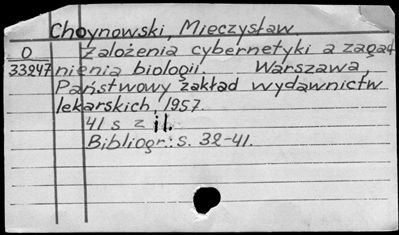 Choynowski, Mieczysław
O Założenia cybernetyki a zagad
33247 nienia biologii. Warszawa,
Państwowy zakład wydawnictw
lekarskich, 1957.
41 s z il.
Bibliogr.: s. 32-41.